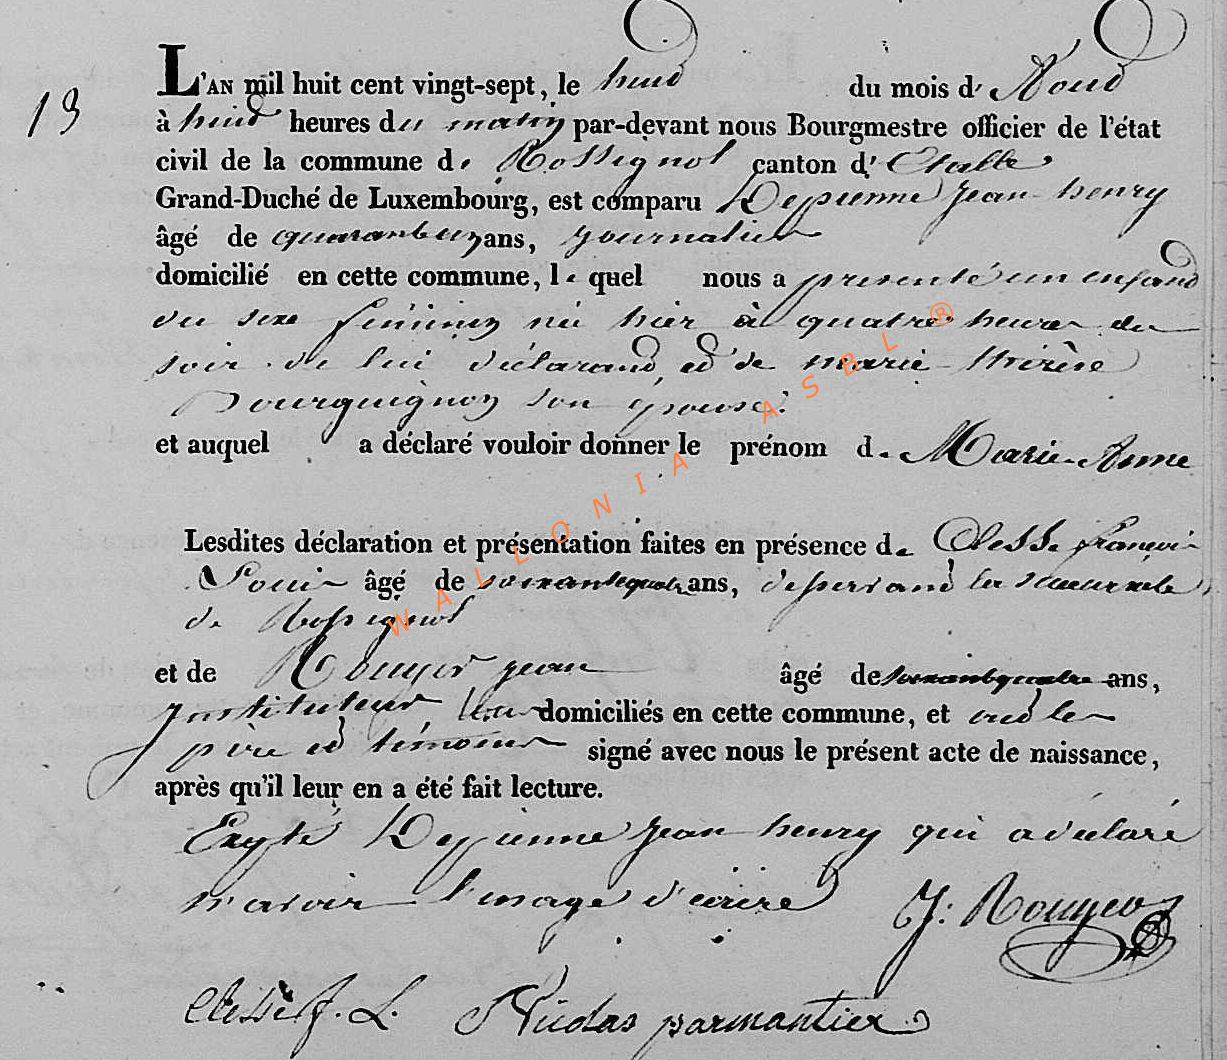 13
L'AN mil huit cent vingt-sept, le huid du mois d'Aoud
à huid heures du matin par-devant nous Bourgmestre officier de l'état
civil de la commune de Rossignol canton d'Etalle
Grand-Duché de Luxembourg, est comparu Depienne jean henry
âgé de ans, journalier
domicilié en cette commune, lequel nous a presenté un enfand
du sexe né hier à quatre heures du
soir de lui déclarand, ed de marie thérèse
Bourguignon son epouse.
et auquel a déclaré vouloir donner le prénom de Marie Anne
Lesdites déclaration et présentation faites en présence de Clesse françois
Louis âgé de soixantequatre ans, desservand la succursale
de Rossignol
et de Rougeo jean âgé de soixantequatre ans,
instituteur, domiciliés en cette commune, et ond les
père ed témoins signé avec nous le présent acte de naissance,
après qu'il leur en a été fait lecture.
Depienne jean henry qui a déclaré
n'avoir l'usage d'écrire J: Rougeo
Clesse f. L. Nicolas parmantier
WALLONIA ASBL ®